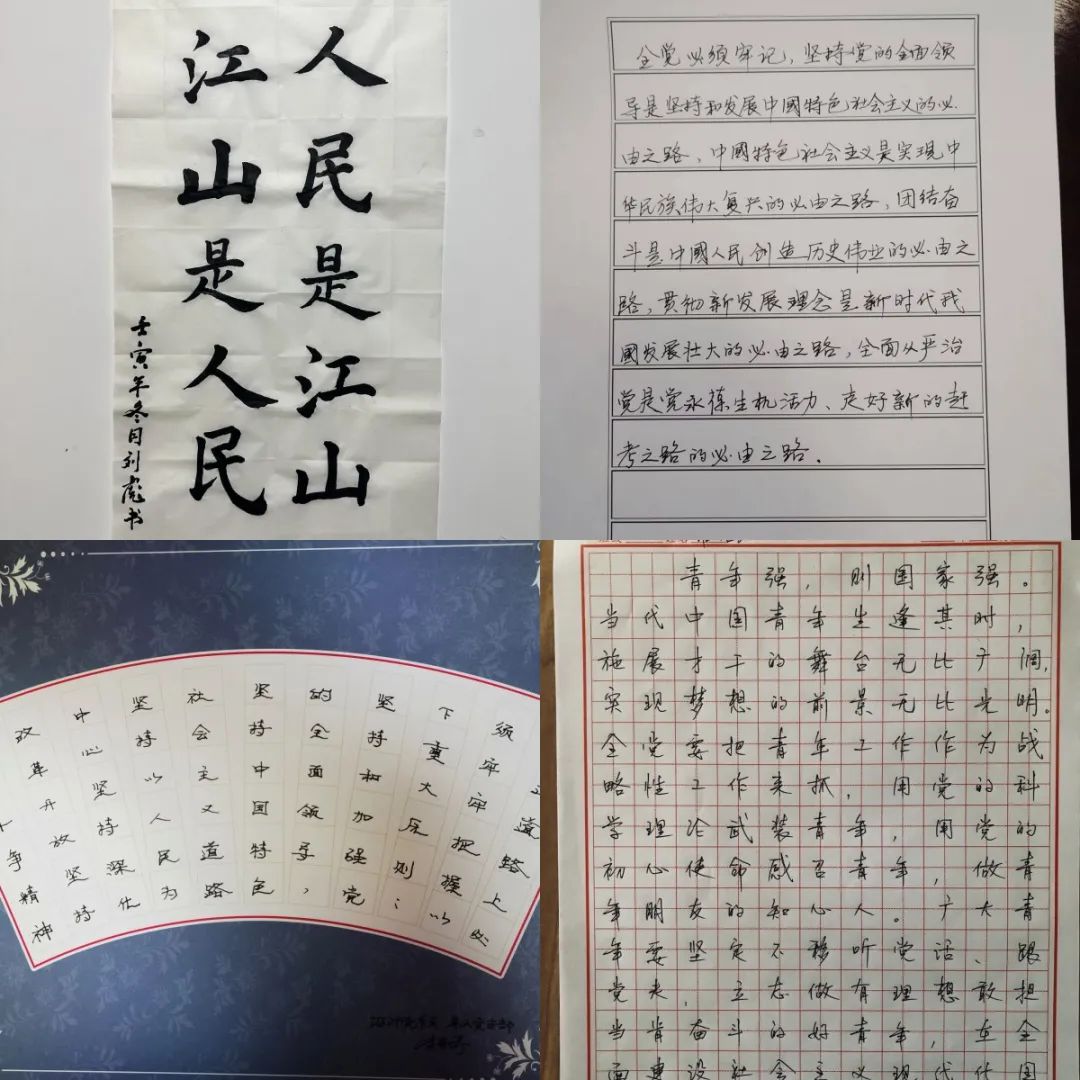 人民是江山
江山是人民
壬寅年冬月刘彪书
全党必须牢记，坚持党的全面领
导是坚持和发展中國特色社会主义的必
由之路，中國特色社会主义是实现中
华民族伟大复兴的必由之路，团结奋
斗是中國人民创造历史伟业的必由之
路，贯彻新发展理念是新时代我
國发展壮大的必由之路，全面从严治
党是党永葆生机活力、走好新的赶
考之路的必由之路．
路上
须牢牢把握以
下重大原则：
坚持和加强党
的全面领导，
坚持中国特色
社会主义道路
坚持以人民为
中心坚持深化
改革开放坚持
争精神
青年强，则国家强。
当代中国青年生逢其时，
施展才干的舞台无比广阔，
实现梦想的前景无比光明。
全党要把青年工作作为战
略性工作来抓，用党的科
学理论武装青年，用党的
初心使命感召青年，做青
年朋友的知心人。广大青
年要坚定不移听党话、跟
党走，立志做有理想敢担
当肯奋斗的好青年，在全
面建设社会主义现代化国